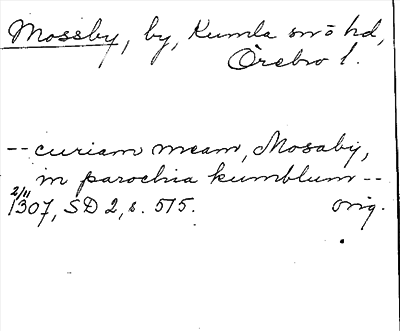 Mossby, by, Kumla sn o hd,
Örebro l.
-- curiam meam, Mosaby,
in parochia kumblum --
2/11
1307, SD 2, s. 515. orig.